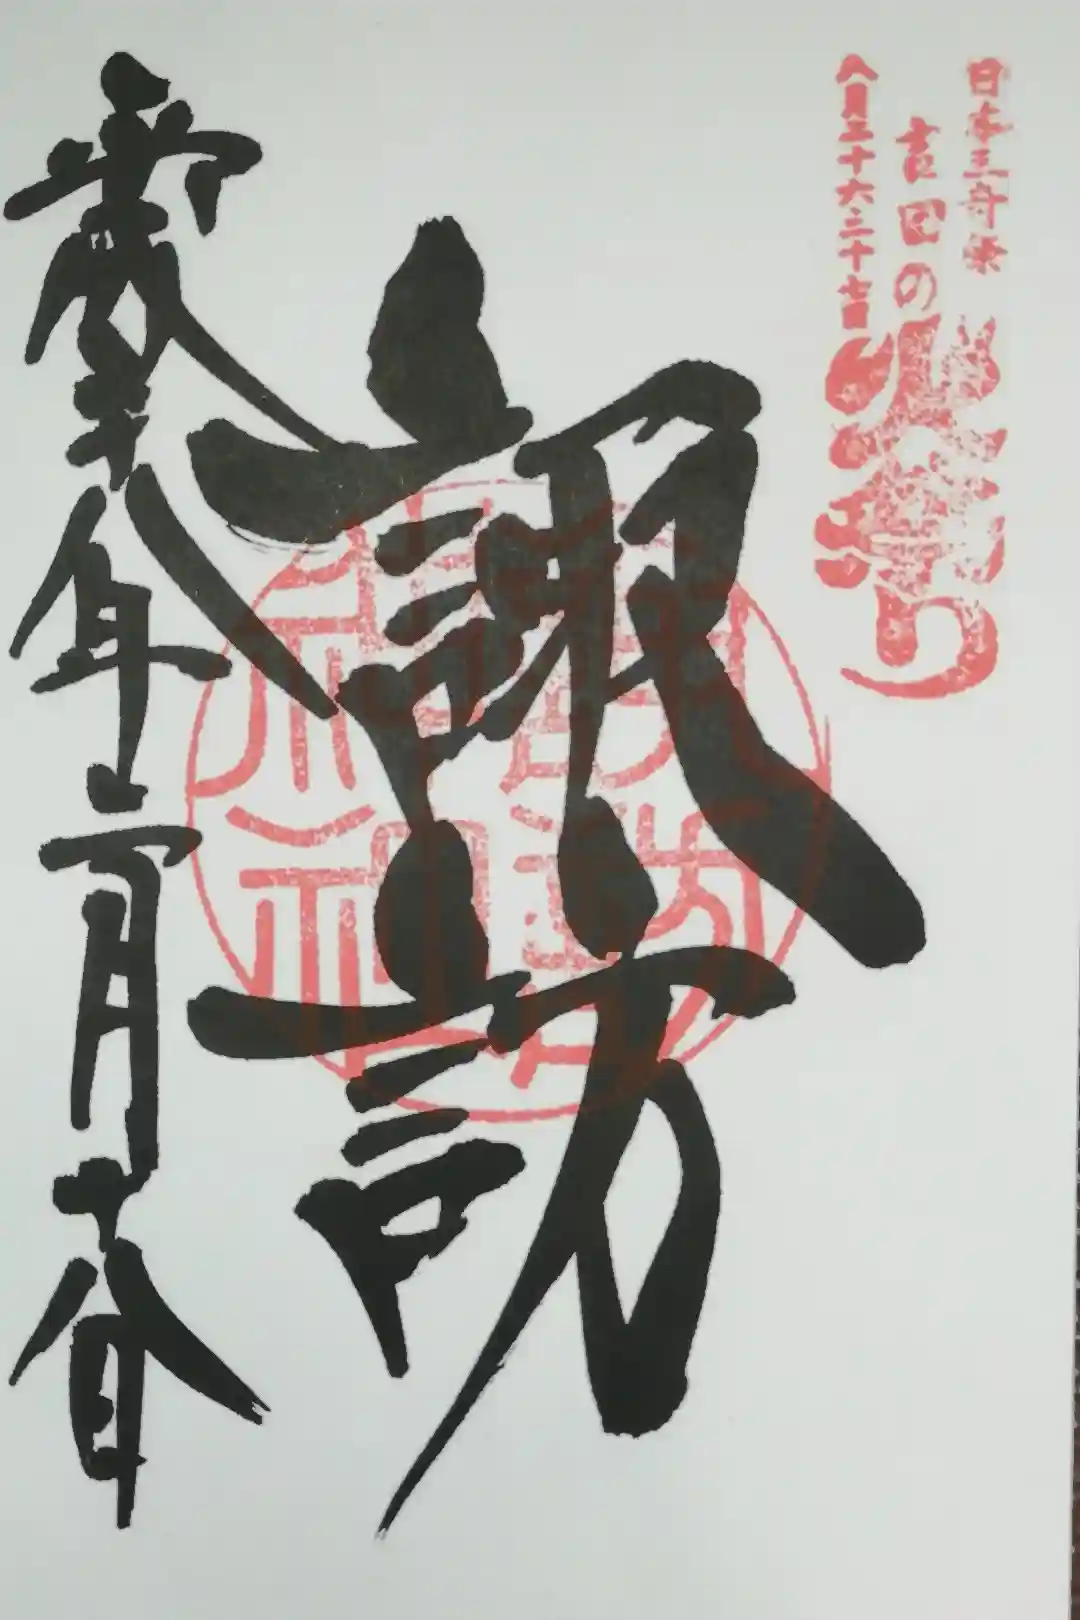 日本三奇祭
吉田の火祭り
八月二十六二十七日
諏訪
年二月十八日